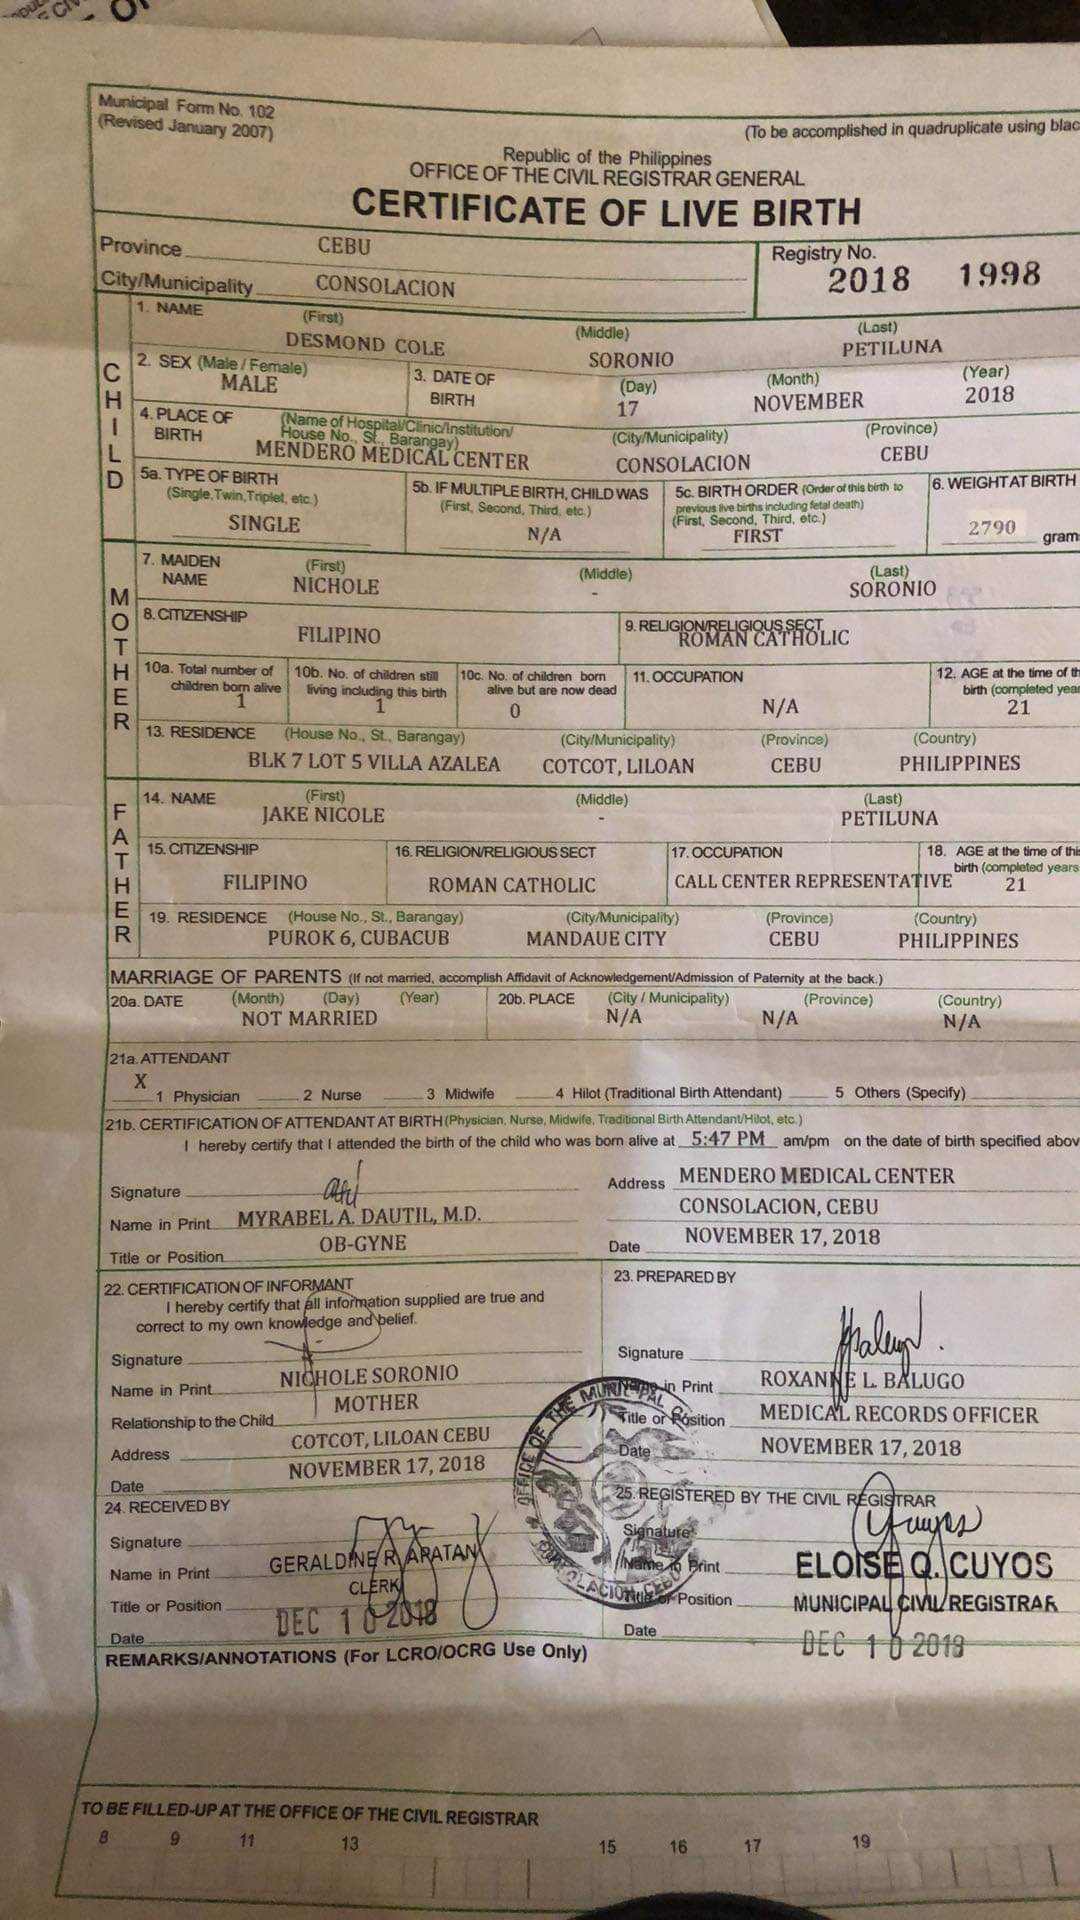 Municipal Form No. 102
(Revised January 2007)
(To be accomplished in quadruplicate using blac
Republic of the Philippines
OFFICE OF THE CIVIL REGISTRAR GENERAL
CERTIFICATE OF LIVE BIRTH
Province CEBU
City/Municipality CONSOLACION
Registry No.
2018 1998
CHILD
1. NAME (First) (Middle) (Last)
DESMOND COLE SORONIO PETILUNA
2. SEX (Male / Female)
MALE
3. DATE OF BIRTH (Day) (Month) (Year)
17 NOVEMBER 2018
4. PLACE OF BIRTH (Name of Hospital/Clinic/Institution/ House No., St., Barangay) (City/Municipality) (Province)
MENDERO MEDICAL CENTER CONSOLACION CEBU
5a. TYPE OF BIRTH
(Single,Twin,Triplet, etc.)
SINGLE
5b. IF MULTIPLE BIRTH, CHILD WAS
(First, Second, Third, etc.)
N/A
5c. BIRTH ORDER (Order of this birth to
previous live births including fetal death)
(First, Second, Third, etc.)
FIRST
6. WEIGHT AT BIRTH
2790 gram
MOTHER
7. MAIDEN NAME (First) (Middle) (Last)
NICHOLE - SORONIO
8. CITIZENSHIP
FILIPINO
9. RELIGION/RELIGIOUS SECT
ROMAN CATHOLIC
10a. Total number of
children born alive
1
10b. No. of children still
living including this birth
1
10c. No. of children born
alive but are now dead
0
11. OCCUPATION
N/A
12. AGE at the time of th
birth (completed yea
21
13. RESIDENCE (House No., St., Barangay) (City/Municipality) (Province) (Country)
BLK 7 LOT 5 VILLA AZALEA COTCOT, LILOAN CEBU PHILIPPINES
FATHER
14. NAME (First) (Middle) (Last)
JAKE NICOLE - PETILUNA
15. CITIZENSHIP
FILIPINO
16. RELIGION/RELIGIOUS SECT
ROMAN CATHOLIC
17. OCCUPATION
CALL CENTER REPRESENTATIVE
18. AGE at the time of this
birth (completed years
21
19. RESIDENCE (House No., St., Barangay) (City/Municipality) (Province) (Country)
PUROK 6, CUBACUB MANDAUE CITY CEBU PHILIPPINES
MARRIAGE OF PARENTS (If not married, accomplish Affidavit of Acknowledgement/Admission of Paternity at the back.)
20a. DATE (Month) (Day) (Year)
NOT MARRIED
20b. PLACE (City / Municipality) (Province) (Country)
N/A N/A N/A
21a. ATTENDANT
X
1 Physician 2 Nurse 3 Midwife 4 Hilot (Traditional Birth Attendant) 5 Others (Specify)
21b. CERTIFICATION OF ATTENDANT AT BIRTH (Physician, Nurse, Midwife, Traditional Birth Attendant/Hilot, etc.)
I hereby certify that I attended the birth of the child who was born alive at 5:47 PM am/pm on the date of birth specified abov
Signature
Name in Print MYRABEL A. DAUTIL, M.D.
Title or Position OB-GYNE
Address MENDERO MEDICAL CENTER
CONSOLACION, CEBU
Date NOVEMBER 17, 2018
22. CERTIFICATION OF INFORMANT
I hereby certify that all information supplied are true and
correct to my own knowledge and belief.
Signature
Name in Print NICHOLE SORONIO
Relationship to the Child MOTHER
Address COTCOT, LILOAN CEBU
Date NOVEMBER 17, 2018
23. PREPARED BY
Signature
Name in Print ROXANNE L. BALUGO
Title or Position MEDICAL RECORDS OFFICER
Date NOVEMBER 17, 2018
24. RECEIVED BY
Signature
Name in Print GERALDINE R. APATAN
Title or Position CLERK
Date DEC 10 2018
25. REGISTERED BY THE CIVIL REGISTRAR
Signature
Name in Print ELOISE Q. CUYOS
Title or Position MUNICIPAL CIVIL REGISTRAR
Date DEC 10 2018
OFFICE OF THE MUNICIPAL
CONSOLACION, CEBU
REMARKS/ANNOTATIONS (For LCRO/OCRG Use Only)
TO BE FILLED-UP AT THE OFFICE OF THE CIVIL REGISTRAR
8 9 11 13 15 16 17 19